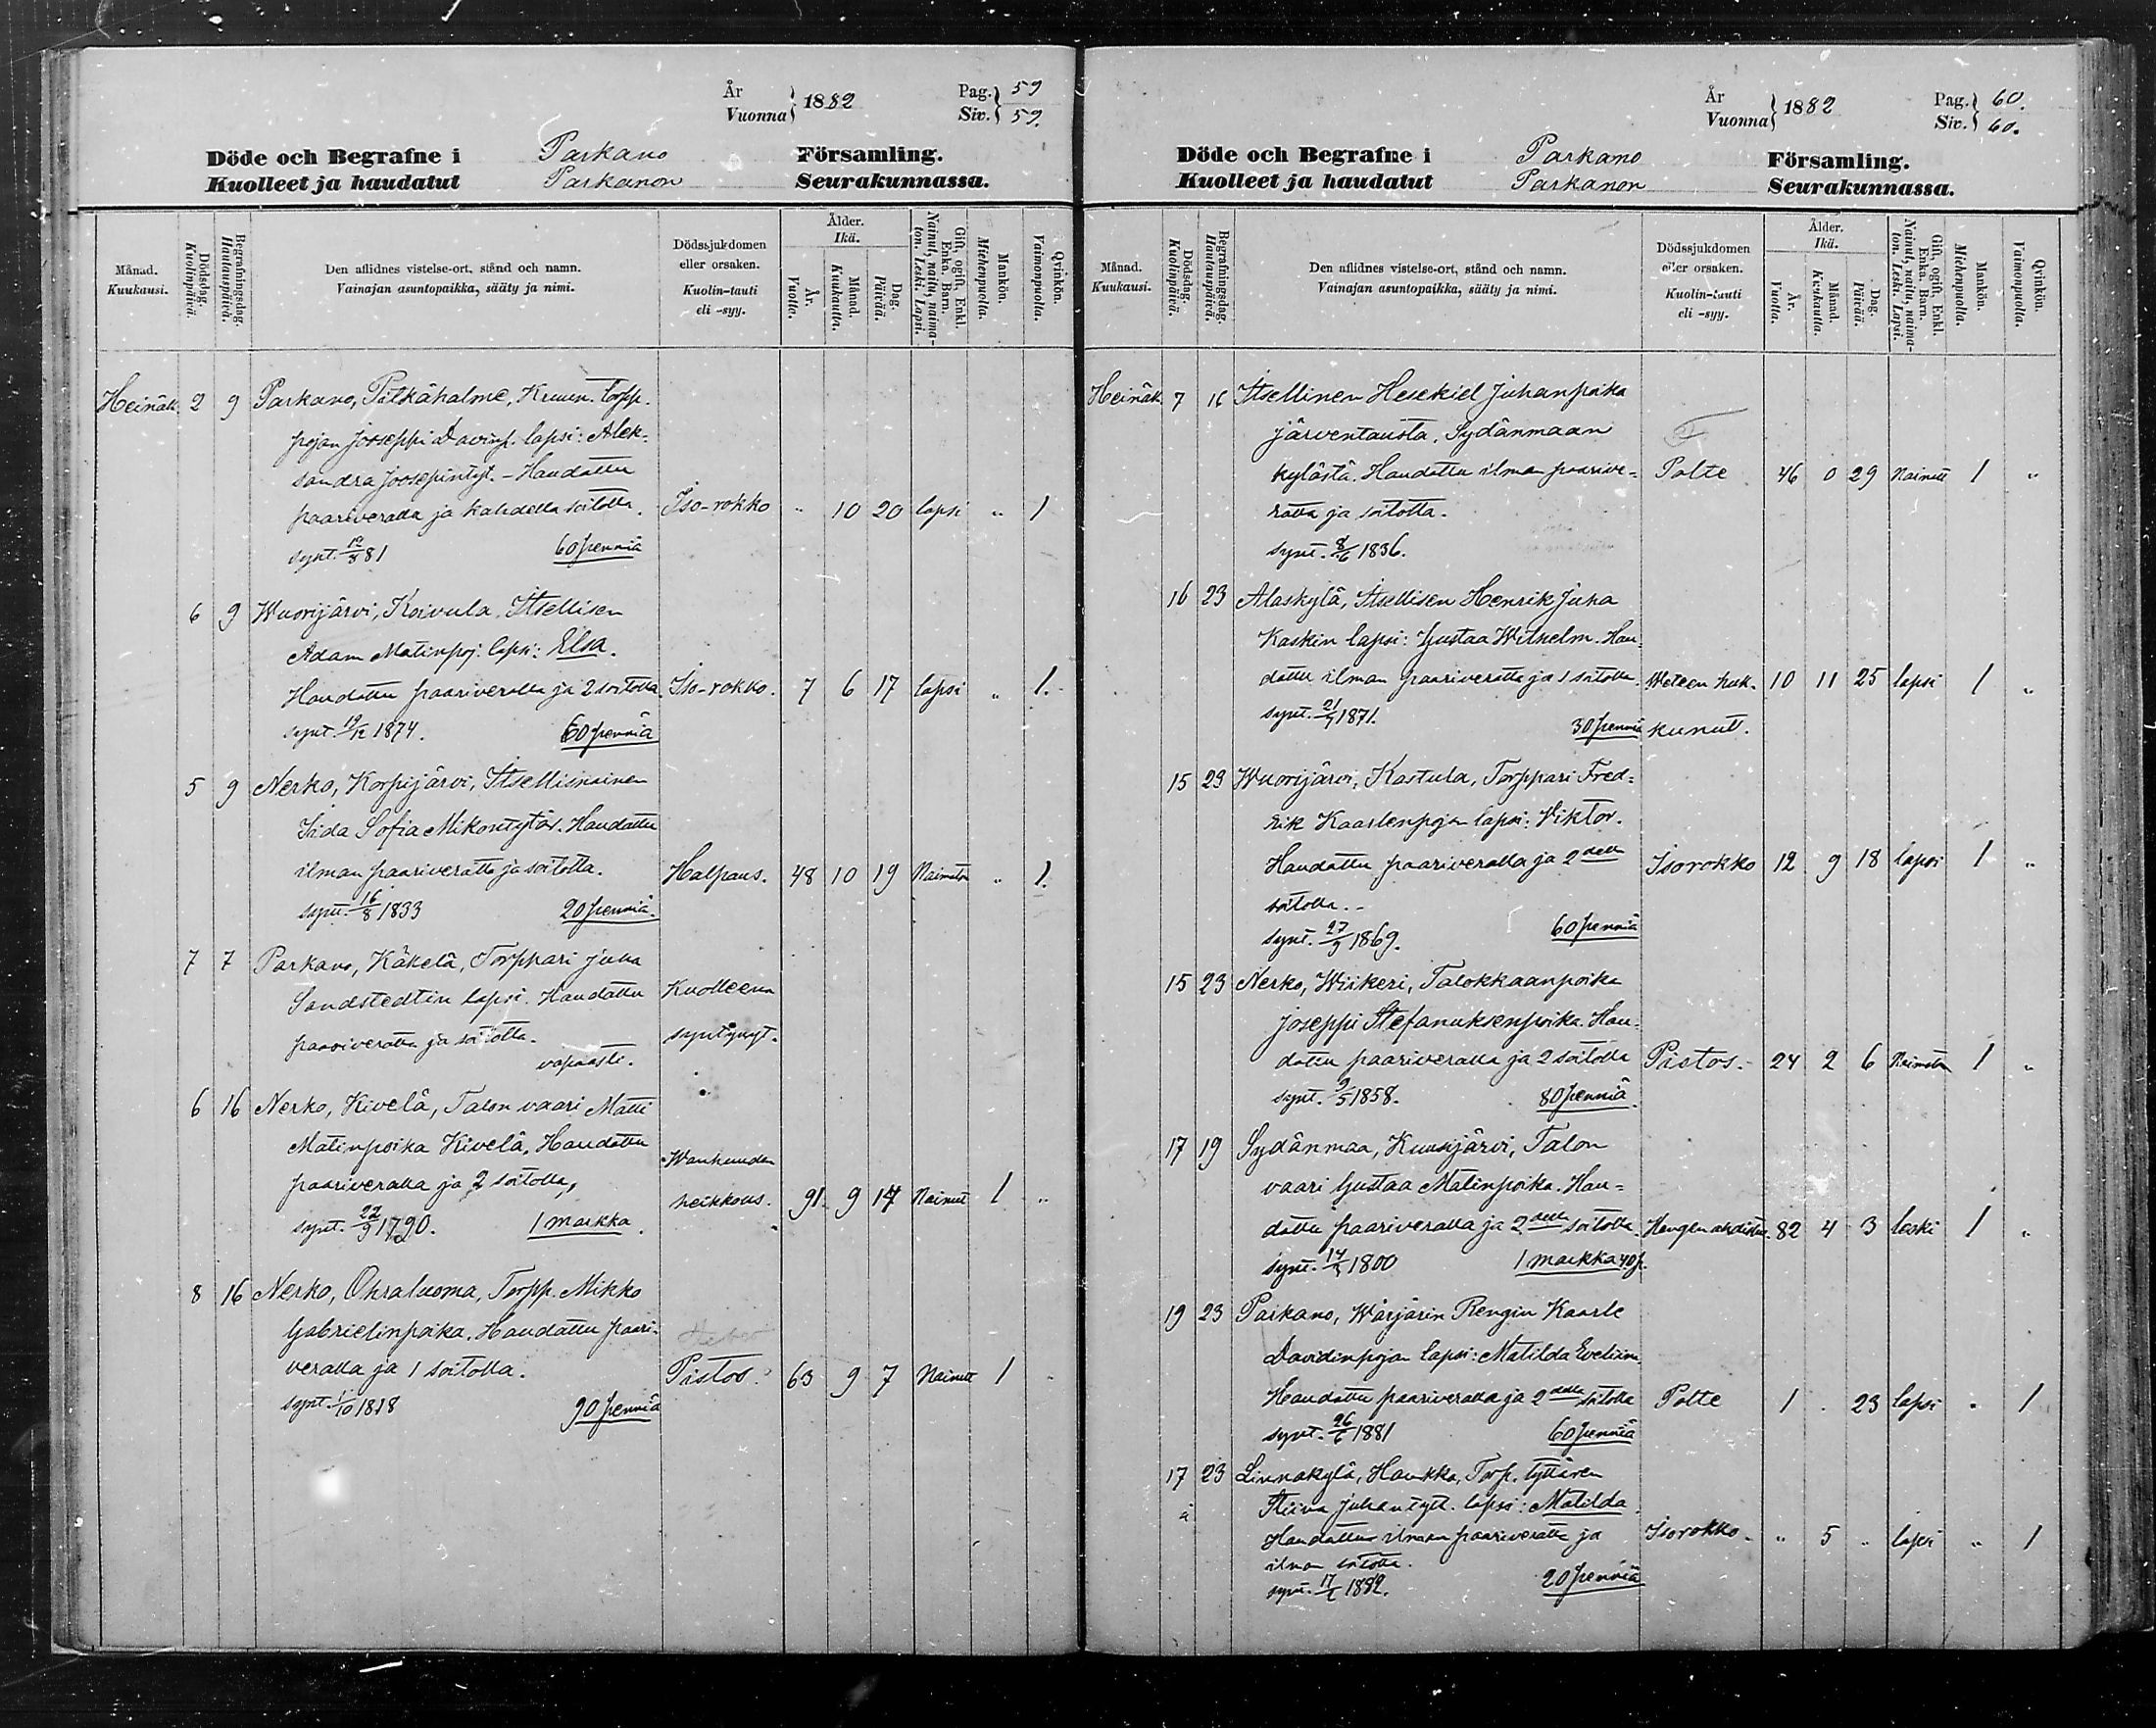 År
Vuonna } 1882
Pag. } 59
Siv. } 59.
Döde och Begrafne i Parkano Församling.
Kuolleet ja haudatut Parkanon Seurakunnassa.
Månad.
Kuukausi.
Dödsdag.
Kuolinpäivä.
Begrafningsdag
Hautauspäivä.
Den aflidnes vistelse-ort, stånd och namn.
Vainajan asuntopaikka, sääty ja nimi.
Dödssjukdomen
eller orsaken.
Kuolin-tauti
eli -syy.
Ålder.
Ikä.
År.
Vuotta.
Månad.
Kuukautta.
Dag.
Päivää.
Gift, ogift, Enkl.
Enka. Barn.
Nainut, naitu, naima-
ton. Leski. Lapsi.
Mankön.
Miehenpuolia.
Qvinkön.
Vaimonpuolia.
Heinäk. 2 9 Parkano, Pilkähalme, Kruun. torpp.
pojan Jooseppi Davinp. lapsi: Alek=
sandra Joosepintyt. - Haudattu
paariveralla ja kahdella soitolla. Iso-rokko " 10 20 lapsi " 1
synt. 12/8 81 60 penniä
6 9 Wuorijärvi, Koivula, Itsellisen
Adam Matinpoj. lapsi: Elsa.
Haudattu paariveralla ja 2 soitolla. Iso-rokko. 7 6 17 lapsi " 1.
synt. 19/12 1874. 60 penniä
5 9 Nerko, Korpijärvi, Itsellisnainen
Iida Sofia Mikontytär. Haudattu
ilman paariveratta ja soitotta. Halpaus. 48 10 19 Naimaton " 1.
synt. 16/8 1833 20 penniä.
7 7 Parkano, Käkelä, Torppari Juha
Sandstedtin lapsi. Haudattu Kuolleena
paariveratta ja soitotta. syntynyt.
vapaasti.
6 16 Nerko, Kivelä, Talon vaari Matti
Matinpoika Kivelä, Haudattu Wanhuuden
paariveralla ja 2 soitolla, heikkous. 91 9 14 Nainut 1 "
synt. 22/9 1790. 1 markka.
8 16 Nerko, Ohraluoma, Torpp. Mikko
Gabrielinpoika. Haudattu paari=
veralla ja 1 soitolla. Pistos. 63 9 7 Nainut 1
synt. 1/10 1818 90 penniä
År
Vuonna } 1882
Pag. } 60.
Siv. } 60.
Döde och Begrafne i Parkano Församling.
Kuolleet ja haudatut Parkanon Seurakunnassa.
Månad.
Kuukausi.
Dödsdag.
Kuolinpäivä.
Begrafningsdag.
Hautauspäivä.
Den aflidnes vistelse-ort, stånd och namn.
Vainajan asuntopaikka, sääty ja nimi.
Dödssjukdomen
eller orsaken.
Kuolin-tauti
eli -syy.
Ålder.
Ikä.
År.
Vuotta.
Månad.
Kuukautta.
Dag.
Päivää.
Gift, ogift, Enkl.
Enka. Barn.
Nainut, naitu, naima-
ton. Leski. Lapsi.
Mankön.
Miehenpuolia.
Qvinkön.
Vaimonpuolia.
Heinäk. 7 16 Itsellinen Hesekiel Juhanpoika
Järventausta, Sydänmaan
kylästä. Haudattu ilman paarive= Polte 46 0 29 Nainutt 1 "
ratta ja soitotta.
synt. 8/6 1836.
16 23 Alaskylä, Itsellisen Henrik Juha
Kaskin lapsi: Gustaa Wilhelm. Hau=
dattu ilman paariveratta ja 1 soitolla. Weteen huk- 10 11 25 lapsi 1 "
synt. 21/7 1871. 30 penniä kunut.
15 23 Wuorijärvi, Kastula, Torppari Fred=
rik Kaarlenpojan lapsi: Viktor.
Haudattu paariveralla ja 2della Isorokko 12 9 18 lapsi 1 "
soitolla. -
synt. 27/9 1869. 60 penniä
15 23 Nerko, Wiikeri, Talokkaanpoika
Joseppi Stefanuksenpoika. Hau=
dattu paariveralla ja 2 soitolla Pistos. 24 2 6 Naimaton 1 "
synt. 9/5 1858. 80 penniä.
17 19 Sydänmaa, Kuusijärvi, Talon
vaari Gustaa Matinpoika. Hau=
dattu paariveralla ja 2della soitolla. Hengenahdistus. 82 4 3 leski 1 "
synt. 14/3 1800 1 markka 40 p.
19 23 Parkano, Wärjärin Rengin Kaarle
Davidinpojan lapsi: Matilda Eveliina.
Haudattu paariveralla ja 2della soitolla Polte 1 . 23 lapsi " 1
synt. 26/6 1881 60 penniä
17 23 Linnakylä, Haukka, Torp. tyttären
Stiina Juhantyt. lapsi: Matilda
Haudattu ilman paariveratta ja Isorokko " 5 " lapsi " 1
ilman soitotta.
synt. 17/2 1882. 20 penniä